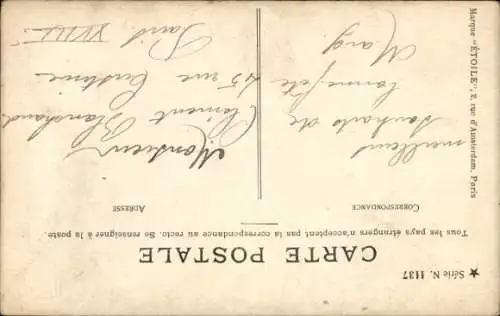 ★ Série N. 1137
CARTE POSTALE
Tous les pays étrangers n'acceptent pas la correspondance au recto. Se renseigner à la poste.
CORRESPONDANCE
ADRESSE
meilleurs
souhaits de
bonne fête
Marg
Monsieur
Clément Blanchard
45 rue Custine
Paris
XVIII
Marque "ÉTOILE", 2, rue d'Amsterdam, Paris